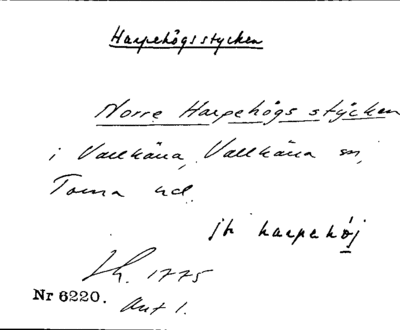 Harpehögsstycken
Norre Harpehögs stycken
i Vallkärra, Vallkärra sn,
Torna hd.
jfr harpehöj
Lh. 1775
Nr 6220.
Avt 1.